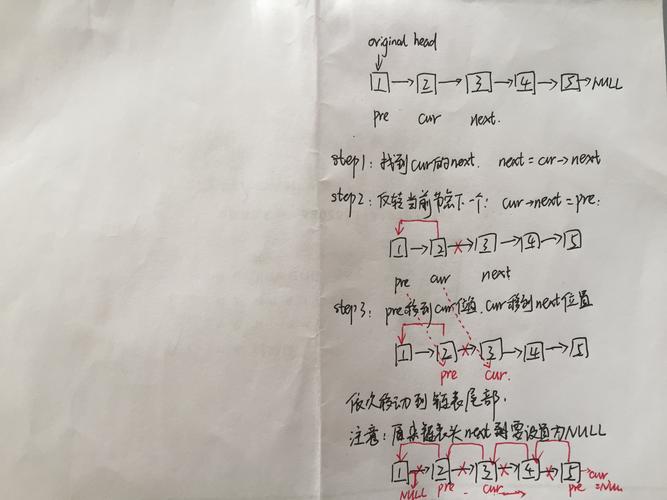 original head
1 → 2 → 3 → 4 → 5 → NULL
pre cur next.
step1: 找到cur的next. next = cur → next
step2: 反转当前节点下一个: cur → next = pre;
1 → 2 → 3 → 4 → 5
pre cur next
step3: pre移到cur位置, cur移到next位置
1 → 2 → 3 → 4 → 5
pre cur.
依次移动到链表尾部.
注意: 原来链表头next到要设置为NULL
1 → 2 → 3 → 4 → 5
NULL pre cur → pre cur = NULL